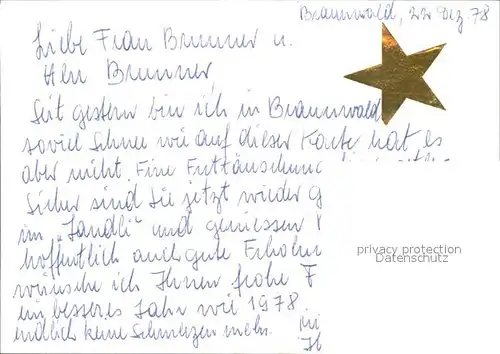 Braunwald, 22 Dez. 78
Liebe Frau Brunner u.
Herr Brunner,
Seit gestern bin ich in Braunwald
soviel Schnee wie auf dieser Karte hat es
aber nicht. Eine Enttäuschung
Sicher sind Sie jetzt wieder g
im "Sandli" und geniessen
hoffentlich auch gute Erholun
wünsche ich Ihnen frohe F
ein besseres Jahr wie 1978
endlich keine Schmerzen mehr.
privacy protection
Datenschutz